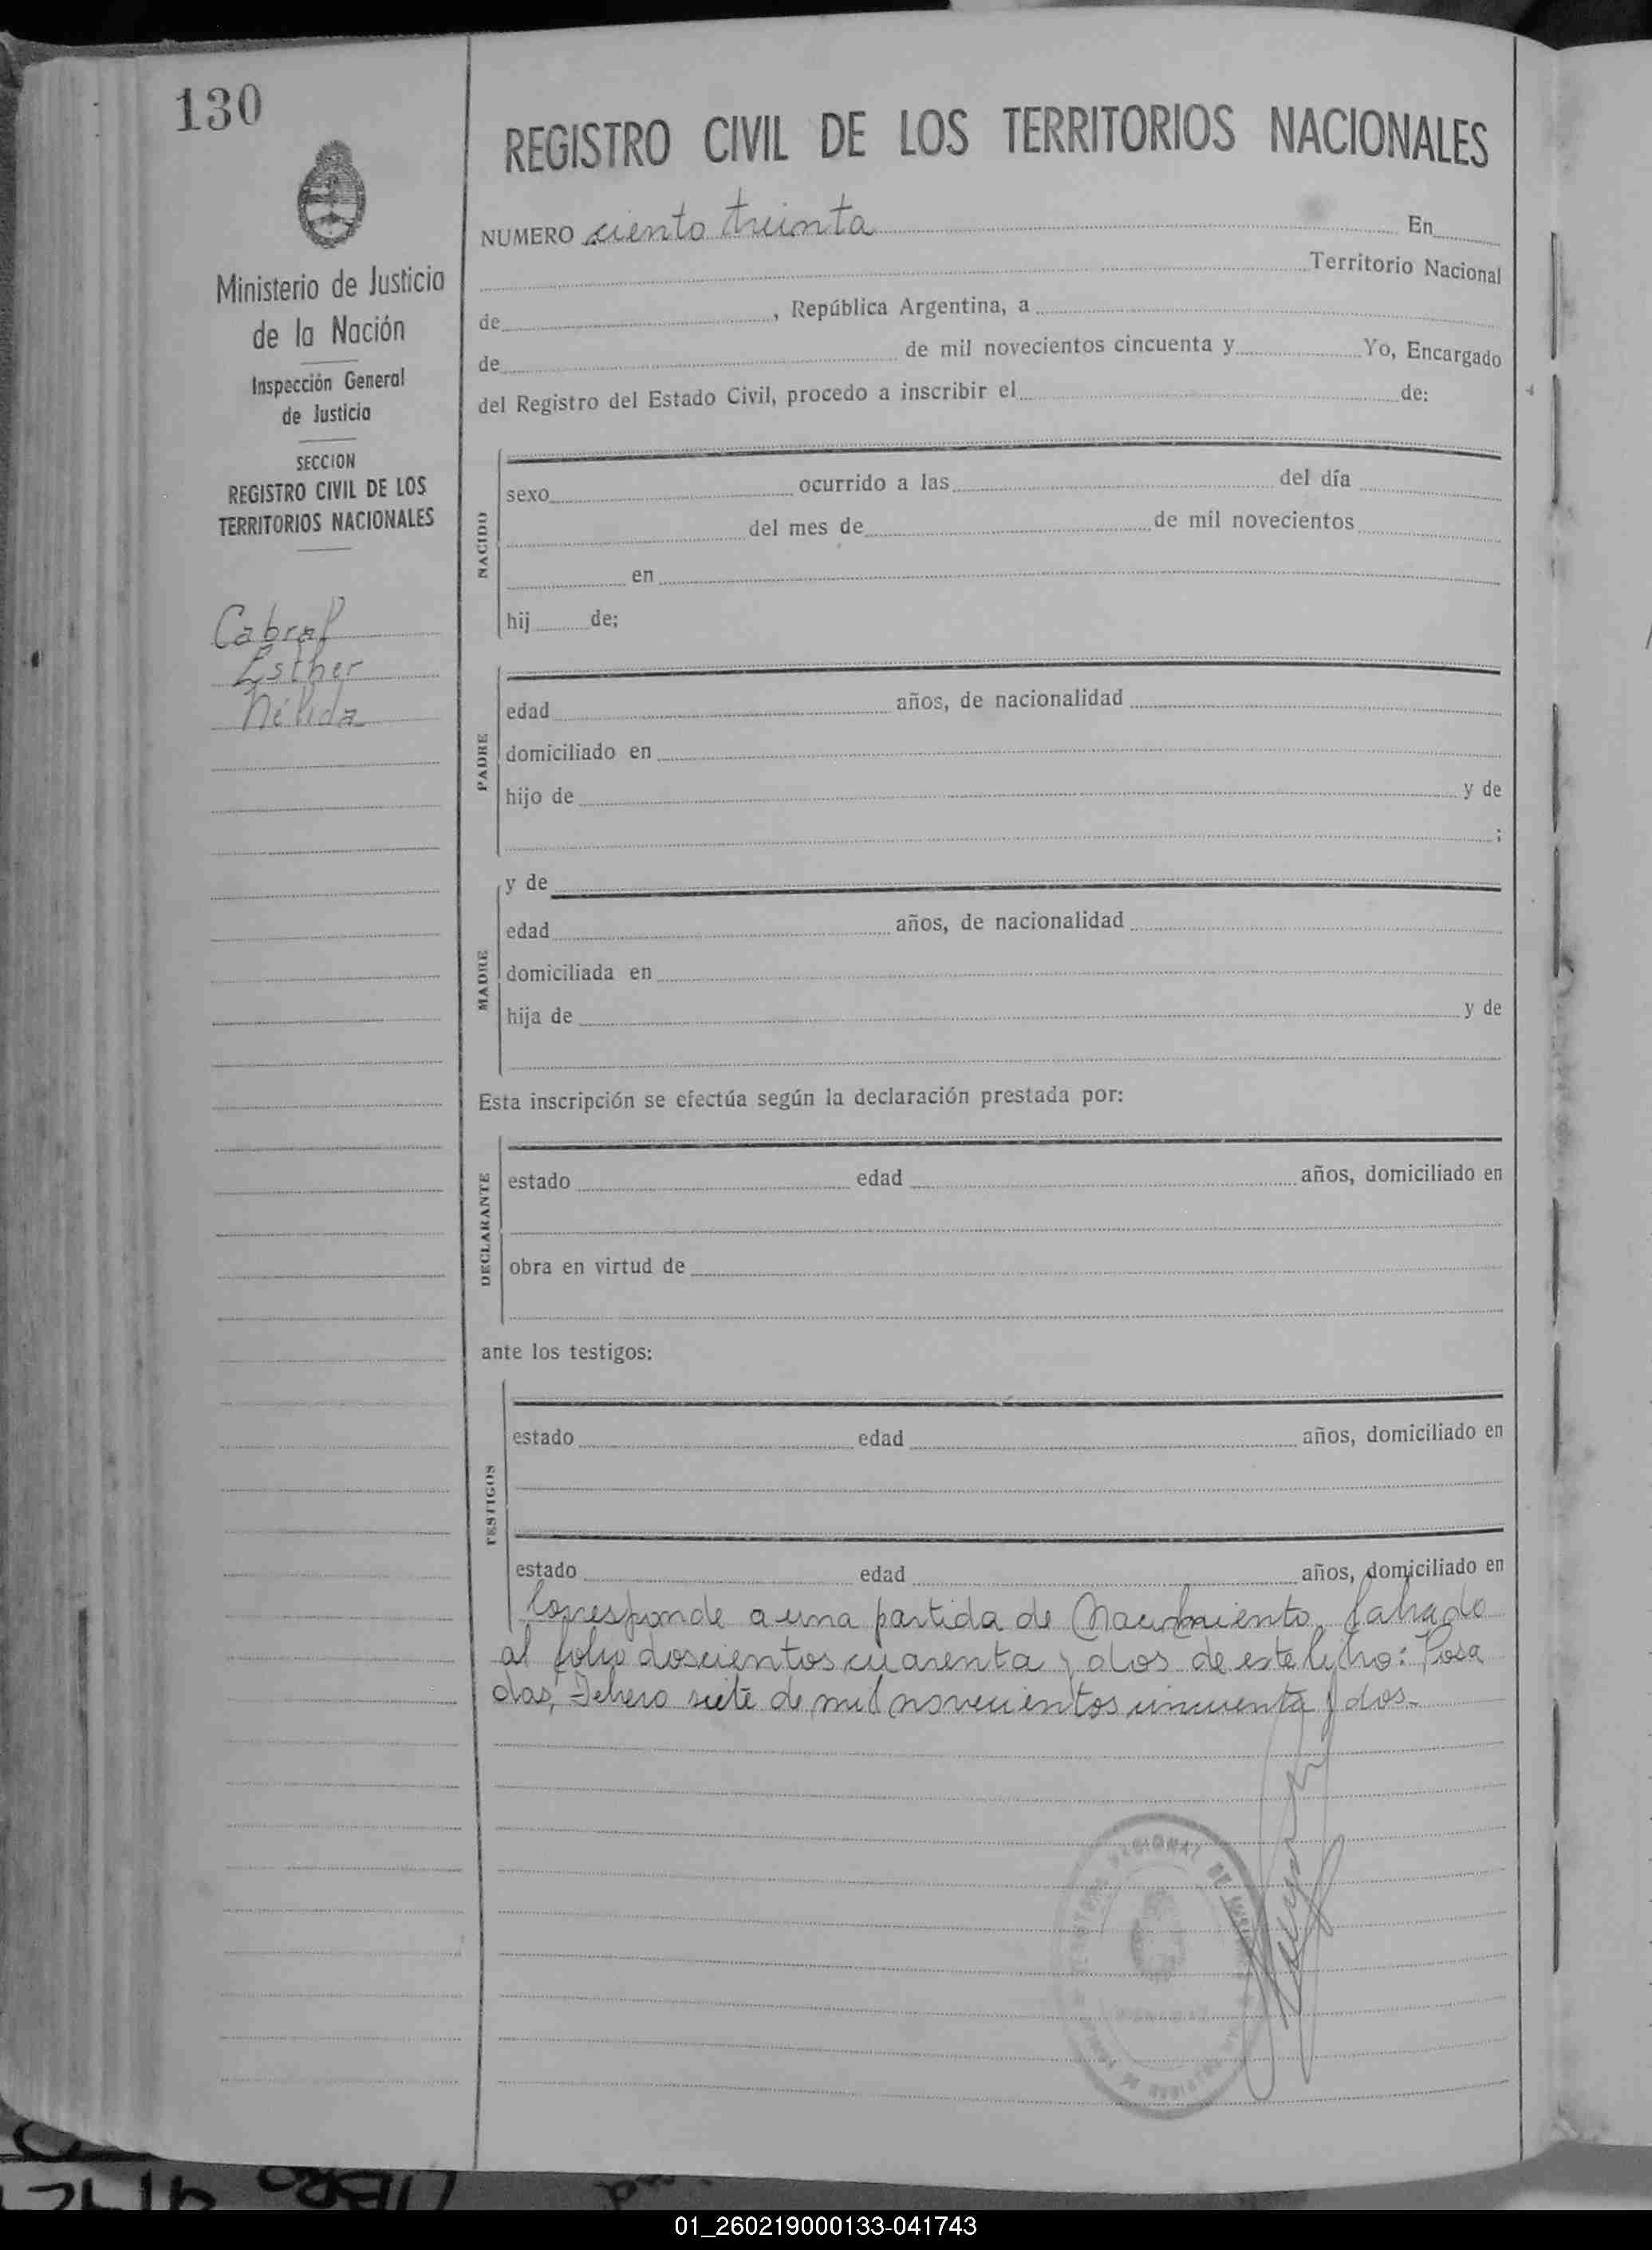 130
Ministerio de Justicia
de la Nación
Inspección General
de Justicia
SECCION
REGISTRO CIVIL DE LOS
TERRITORIOS NACIONALES
Cabral
Esther
Nélida
REGISTRO CIVIL DE LOS TERRITORIOS NACIONALES
NUMERO ciento treinta En
Territorio Nacional
de , República Argentina, a
de de mil novecientos cincuenta y Yo, Encargado
del Registro del Estado Civil, procedo a inscribir el de:
NACIDO
sexo ocurrido a las del día
del mes de de mil novecientos
en
hij de;
PADRE
edad años, de nacionalidad
domiciliado en
hijo de y de
;
MADRE
y de
edad años, de nacionalidad
domiciliada en
hija de y de
Esta inscripción se efectúa según la declaración prestada por:
DECLARANTE
estado edad años, domiciliado en
obra en virtud de
ante los testigos:
TESTIGOS
estado edad años, domiciliado en
estado edad años, domiciliado en
Corresponde a una partida de Nacimiento, labrado
al folio doscientos cuarenta y dos de este libro: Posa
das, Febrero siete de mil novecientos cincuenta y dos.-
LIBRO
01_260219000133-041743